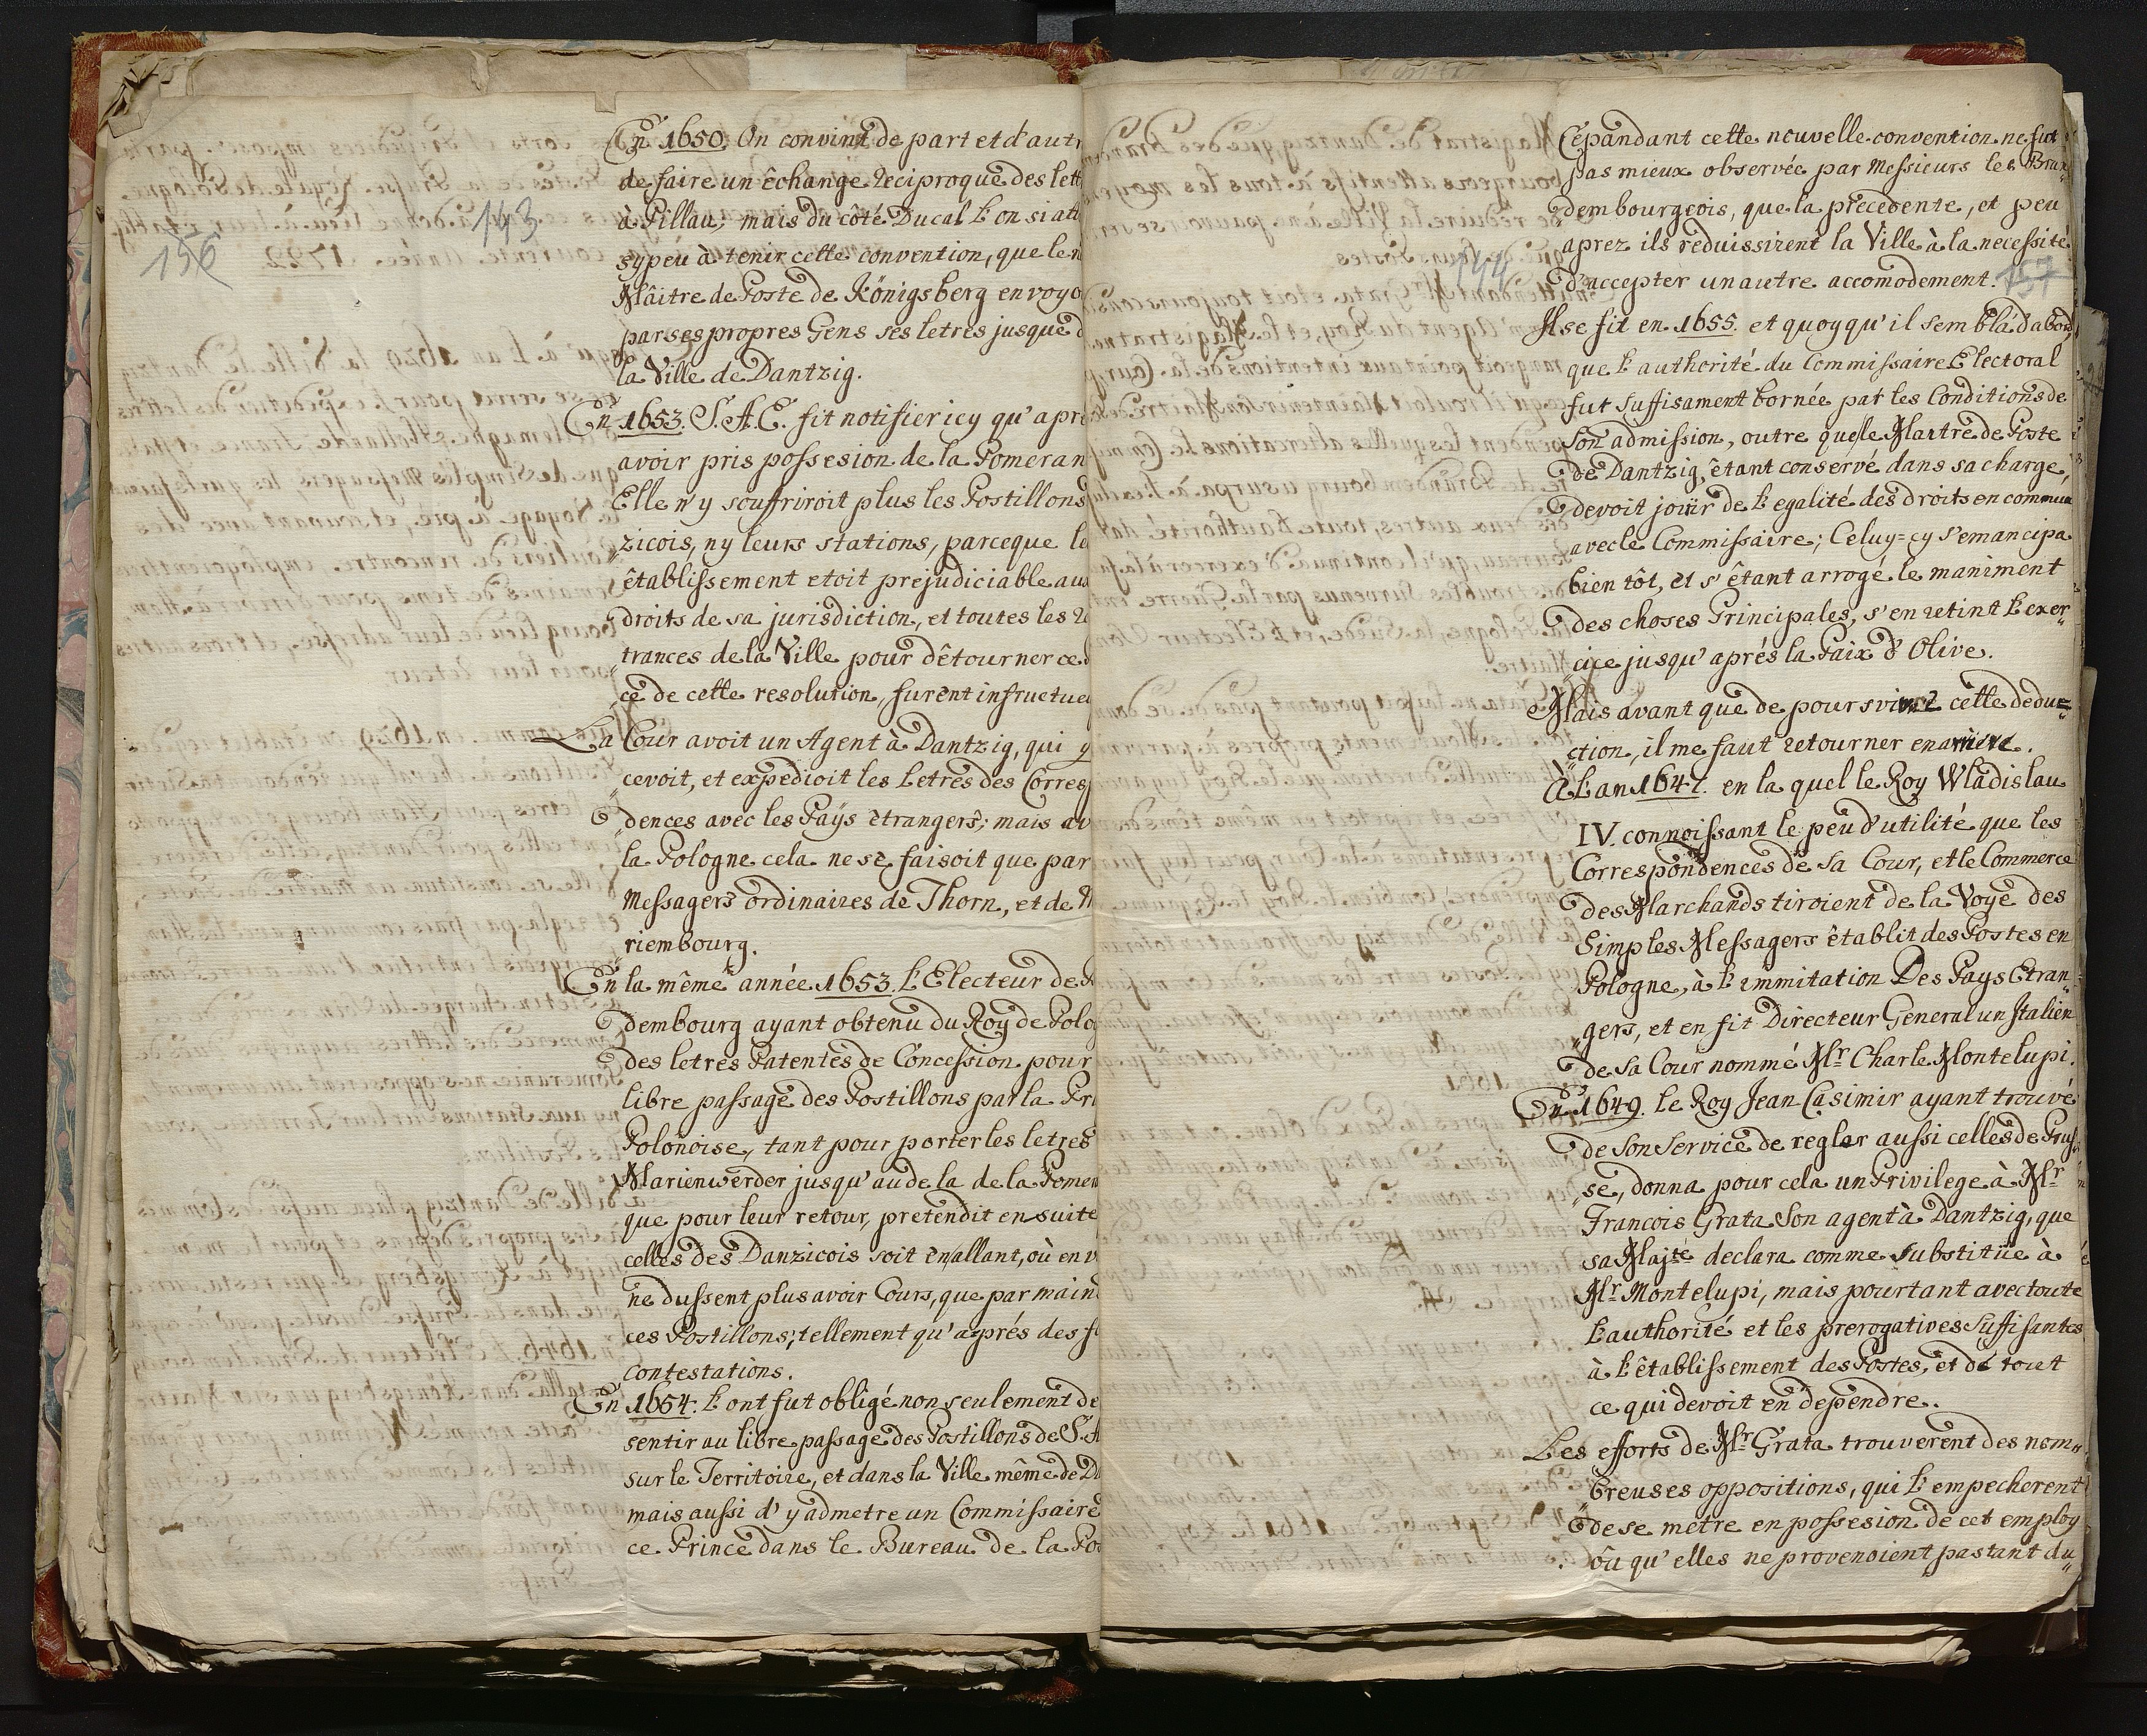 156
143
En 1650. On convint de part et d'autr
de faire un êchange reciproque des lett
à Pillau, mais du côté Ducal L'on si att
sy peu à tenir cette convention, que le
Mâitre de Poste de Königsberg envoyo
par ses propres Gens ses letres jusque d
la Ville de Dantzig.
En 1653. S. A. E. fit notifier icy qu'apre
avoir pris possesion de la Pomeran
Elle n'y souffriroit plus les Postillons
„zicois, ny leurs stations, parceque le
êtablissement etoit prejudiciable aux
droits de sa jurisdiction, et toutes les re
„trances de la Ville pour dêtourner ce
„ce de cette resolution, furent infructue
La Cour avoit un Agent à Dantzig, qui y
„cevoit, et expedioit les Letres des Corres
„dences avec les Païs êtrangers; mais av
la Pologne cela ne se faisoit que par
Messagers ordinaires de Thorn, et de M
„riembourg.
En la même année 1653. L'Electeur de
dembourg ayant obtenu du Roy de Polo
des letres Patentes de Concession pour
libre passage des Postillons par la Pr
Polonoise, tant pour porter les letres
Marienwerder jusqu'au de la de la Pomer
que pour leur retour, pretendit ensuite
celles des Danzicois soit en allant, où en v
ne dussent plus avoir Cours, que par main
ces Postillons; tellement qu'aprés des f
contestations.
En 1654. L'ont fut obligé non seulement de
sentir au libre passage des Postillons de S. A
sur le Territoire, et dans la Ville même de D
mais aussi d'y admetre un Commissaire
ce Prince dans le Bureau de la Po
144
157
Cépandant cette nouvelle convention ne fut
pas mieux observée par Messieurs les Bran„
dembourgeois, que la precedente, et peu
aprez ils reduissirent la Ville à la necessité
d'accepter un autre accomodement.
Il se fit en 1655. et quoyqu'il sembla d'abord,
que L'authorité du Commissaire Electoral
fut suffisament bornée par les Conditions de
son admission, outre que le Maitre de Poste
de Dantzig, êtant conservé dans sa charge,
devoit joüir de L'egalité des droits en commun
avec le Commissaire; Celuy=cy s'emancipa
bien tôt, et s'êtant arrogé le maniment
des choses Principales, s'en retint L'exer„
„cice jusqu'aprés la Paix d'Olive.
Mais avant que de poursvivre cette dedu=
„ction, il me faut retourner enarriere.
À L'an 1647. en la quel le Roy Wladislau
IV. connoissant le peu d'utilité que les
Correspondences de sa Cour, et le Commerce
des Marchands tiroient de la Voye des
Simples Messagers êtablit des Postes en
Pologne, à L'immitation Des Pays Etran„
„gers, et en fit Directeur General un Italien
de sa Cour nommé Mr. Charle Montelupi.
En 1649. le Roy Jean Casimir ayant trouvé
de son Service de regler aussi celles de Prus„
„se, donna pour cela un Privilege à Mr.
Francois Grata Son agent à Dantzig, que
sa Majté declara comme Substitüe à
Mr. Montelupi, mais pourtant avec toute
L'authorité et les prerogatives Suffisantes
à L'êtablissement des Postes, et de tout
ce qui devoit en dependre.
Les efforts de Mr. Grata trouverent des nom„
„breuses oppositions, qui L'empecherent
de se metre en possesion de cet employ
ôu qu'elles ne provenoient pas tant du„